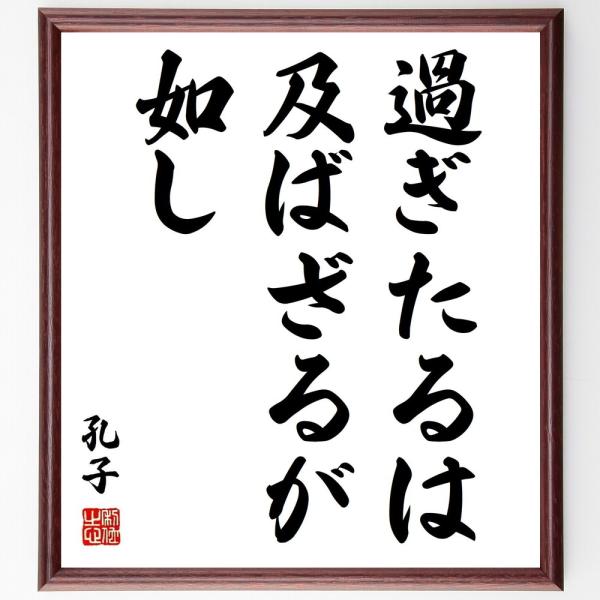 過ぎたるは
及ばざるが
如し
孔子